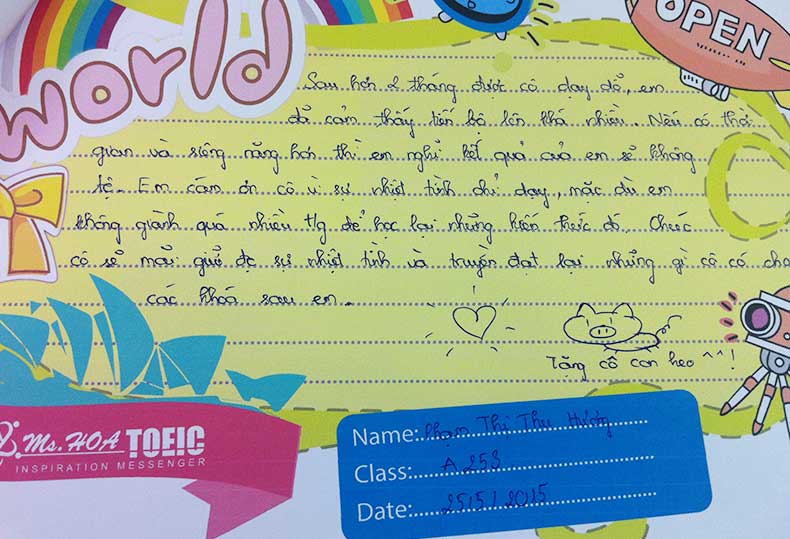 world
OPEN
Sau hơn 2 tháng được cô dạy dỗ, em
đã cảm thấy tiến bộ lên khá nhiều. Nếu có thời
gian và siêng năng hơn thì em nghĩ kết quả của em sẽ không
tệ. Em cảm ơn cô vì sự nhiệt tình chỉ dạy, mặc dù em
không giành quá nhiều t/g để học lại những kiến thức đó. Chúc
cô sẽ mãi giữ đc sự nhiệt tình và truyền đạt lại những gì cô có cho
các khóa sau em.
Tặng cô con heo ^^!
Ms. HOA TOEIC
INSPIRATION MESSENGER
Name: Phạm Thị Thu Hương
Class: A253
Date: 25/5/2015